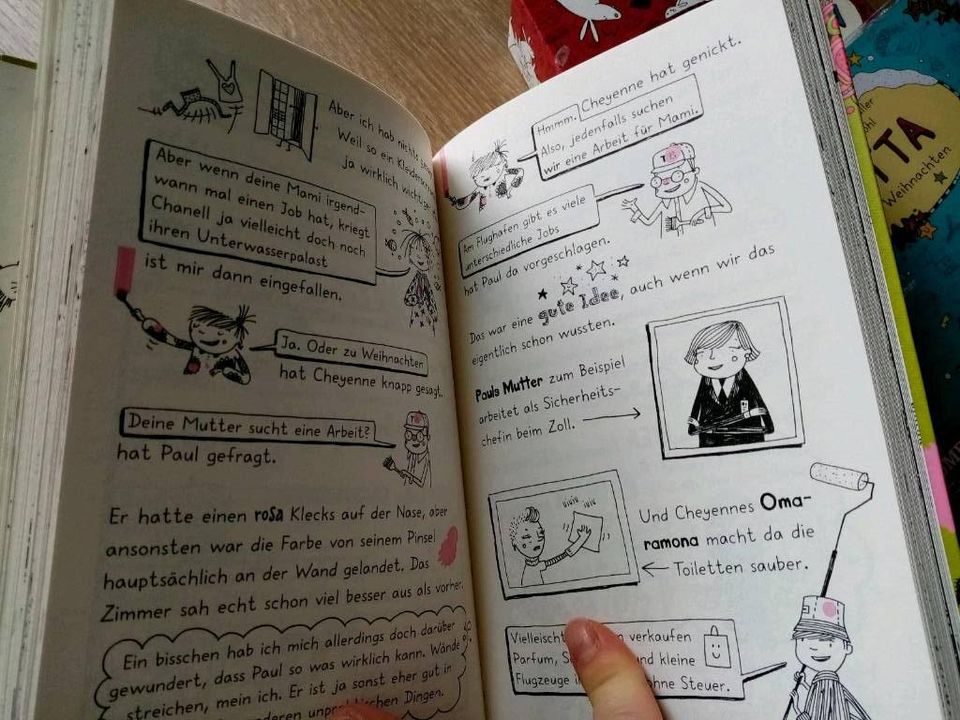 Aber ich hab nichts
Weil so ein
ja wirklich
Aber wenn deine Mami irgend-
wann mal einen Job hat, kriegt
Chanell ja vielleicht doch noch
ihren Unterwasserpalast
ist mir dann eingefallen.
Ja. Oder zu Weihnachten
hat Cheyenne knapp gesagt.
Deine Mutter sucht eine Arbeit?
hat Paul gefragt.
Er hatte einen rosa Klecks auf der Nase, aber
ansonsten war die Farbe von seinem Pinsel
hauptsächlich an der Wand gelandet. Das
Zimmer sah echt schon viel besser aus als vorher.
Ein bisschen hab ich mich allerdings doch darüber
gewundert, dass Paul so was wirklich kann. Wände
streichen, mein ich. Er ist ja sonst eher gut in
anderen unpraktischen Dingen.
Hmmm. Cheyenne hat genickt.
Also, jedenfalls suchen
wir eine Arbeit für Mami.
Am Flughafen gibt es viele
unterschiedliche Jobs
hat Paul da vorgeschlagen.
Das war eine gute Idee, auch wenn wir das
eigentlich schon wussten.
Pauls Mutter zum Beispiel
arbeitet als Sicherheits-
chefin beim Zoll.
Und Cheyennes Oma-
ramona macht da die
Toiletten sauber.
Vielleicht verkaufen
Parfum, und kleine
Flugzeuge ohne Steuer.
TA
Weihnachten